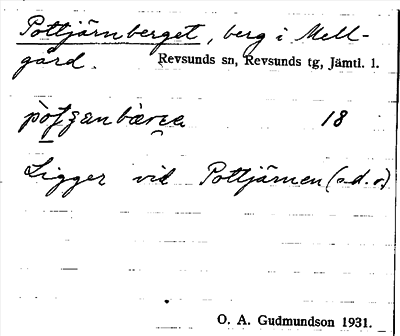 Pottjärnberget, berg i Mell-
gård. Revsunds sn, Revsunds tg, Jämtl. l.
18
Ligger vid Pottjärnen (s.d.o.)
O. A. Gudmundson 1931.